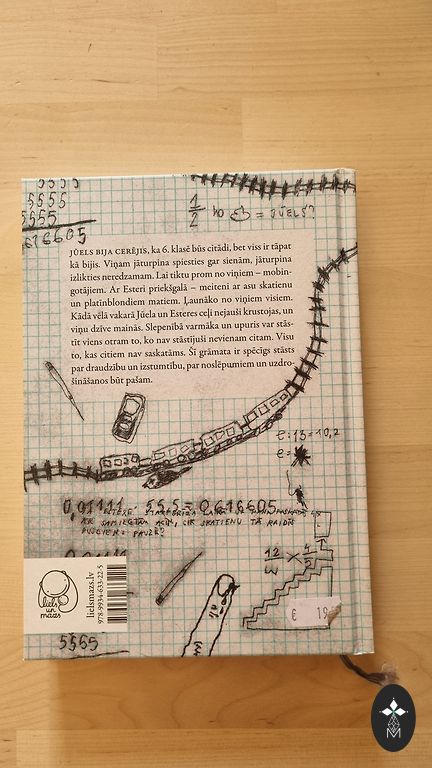 5555
5555
5555
616605
1/2 no = JŪELS?
JŪELS BIJA CERĒJIS, ka 6. klasē būs citādi, bet viss ir tāpat
kā bijis. Viņam jāturpina spiesties gar sienām, jāturpina
izlikties neredzamam. Lai tiktu prom no viņiem – mobin-
gotājiem. Ar Esteri priekšgalā – meiteni ar asu skatienu
un platīnblondiem matiem. Ļaunāko no viņiem visiem.
Kādā vēlā vakarā Jūela un Esteres ceļi nejauši krustojas, un
viņu dzīve mainās. Slepenībā varmāka un upuris var stās-
tīt viens otram to, ko nav stāstījuši nevienam citam. Visu
to, kas citiem nav saskatāms. Šī grāmata ir spēcīgs stāsts
par draudzību un izstumtību, par noslēpumiem un uzdro-
šināšanos būt pašam.
e·13=10,2
e=
0,01111 · 55,5 = 0,616605
AR SAMIEGTĀM ACĪM, CIK SKATIENU TĀ RAIDĪS
PUSGIENU PAUZĒ?
12/3 × 4/5
liels
un
mazs
lielsmazs.lv
978-9934-633-22-5
5555
€ 19
M